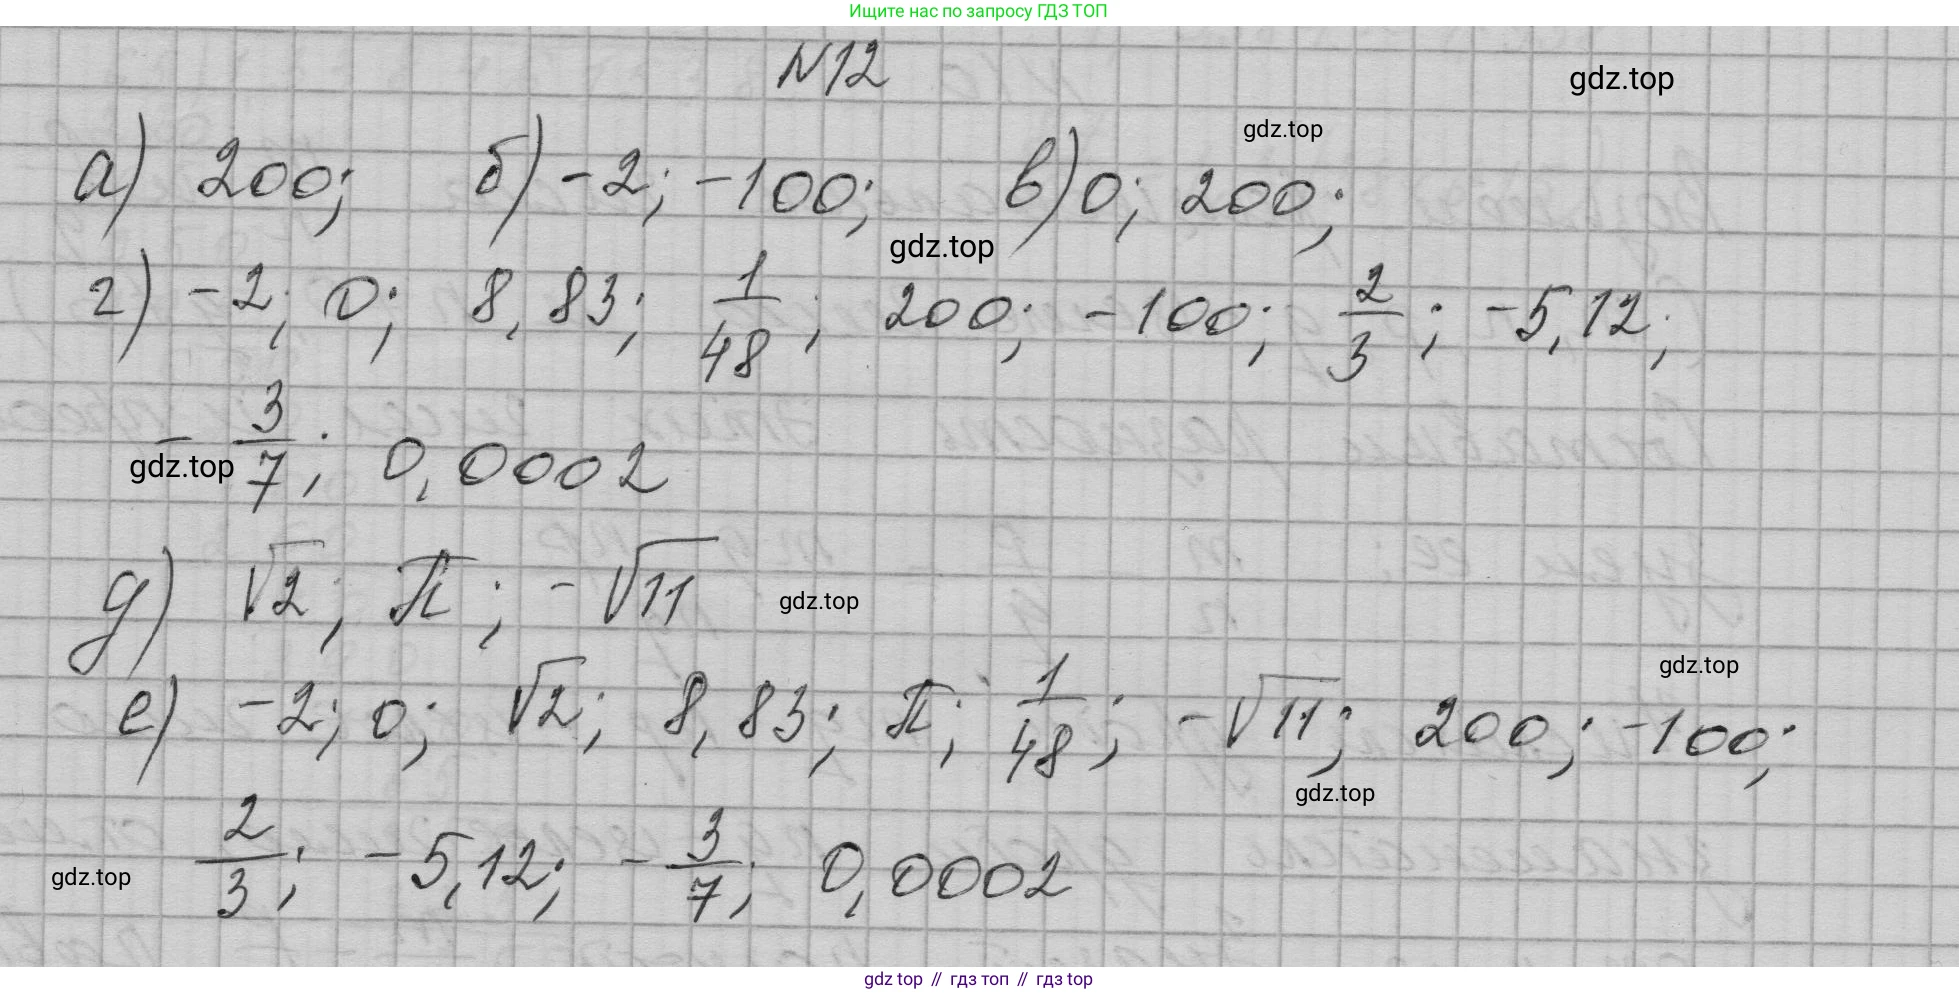 Ищите нас по запросу ГДЗ ТОП
N12
gdz.top
gdz.top
а) 200; б) -2; -100; в) 0; 200;
gdz.top
г) -2; 0; 8,83; 1/48; 200; -100; 2/3; -5,12;
-3/7; 0,0002
gdz.top
д) √2; π; -√11
gdz.top
gdz.top
е) -2; 0; √2; 8,83; π; 1/48; -√11; 200; -100;
gdz.top
2/3; -5,12; -3/7; 0,0002
gdz.top
gdz top // гдз топ // гдз top